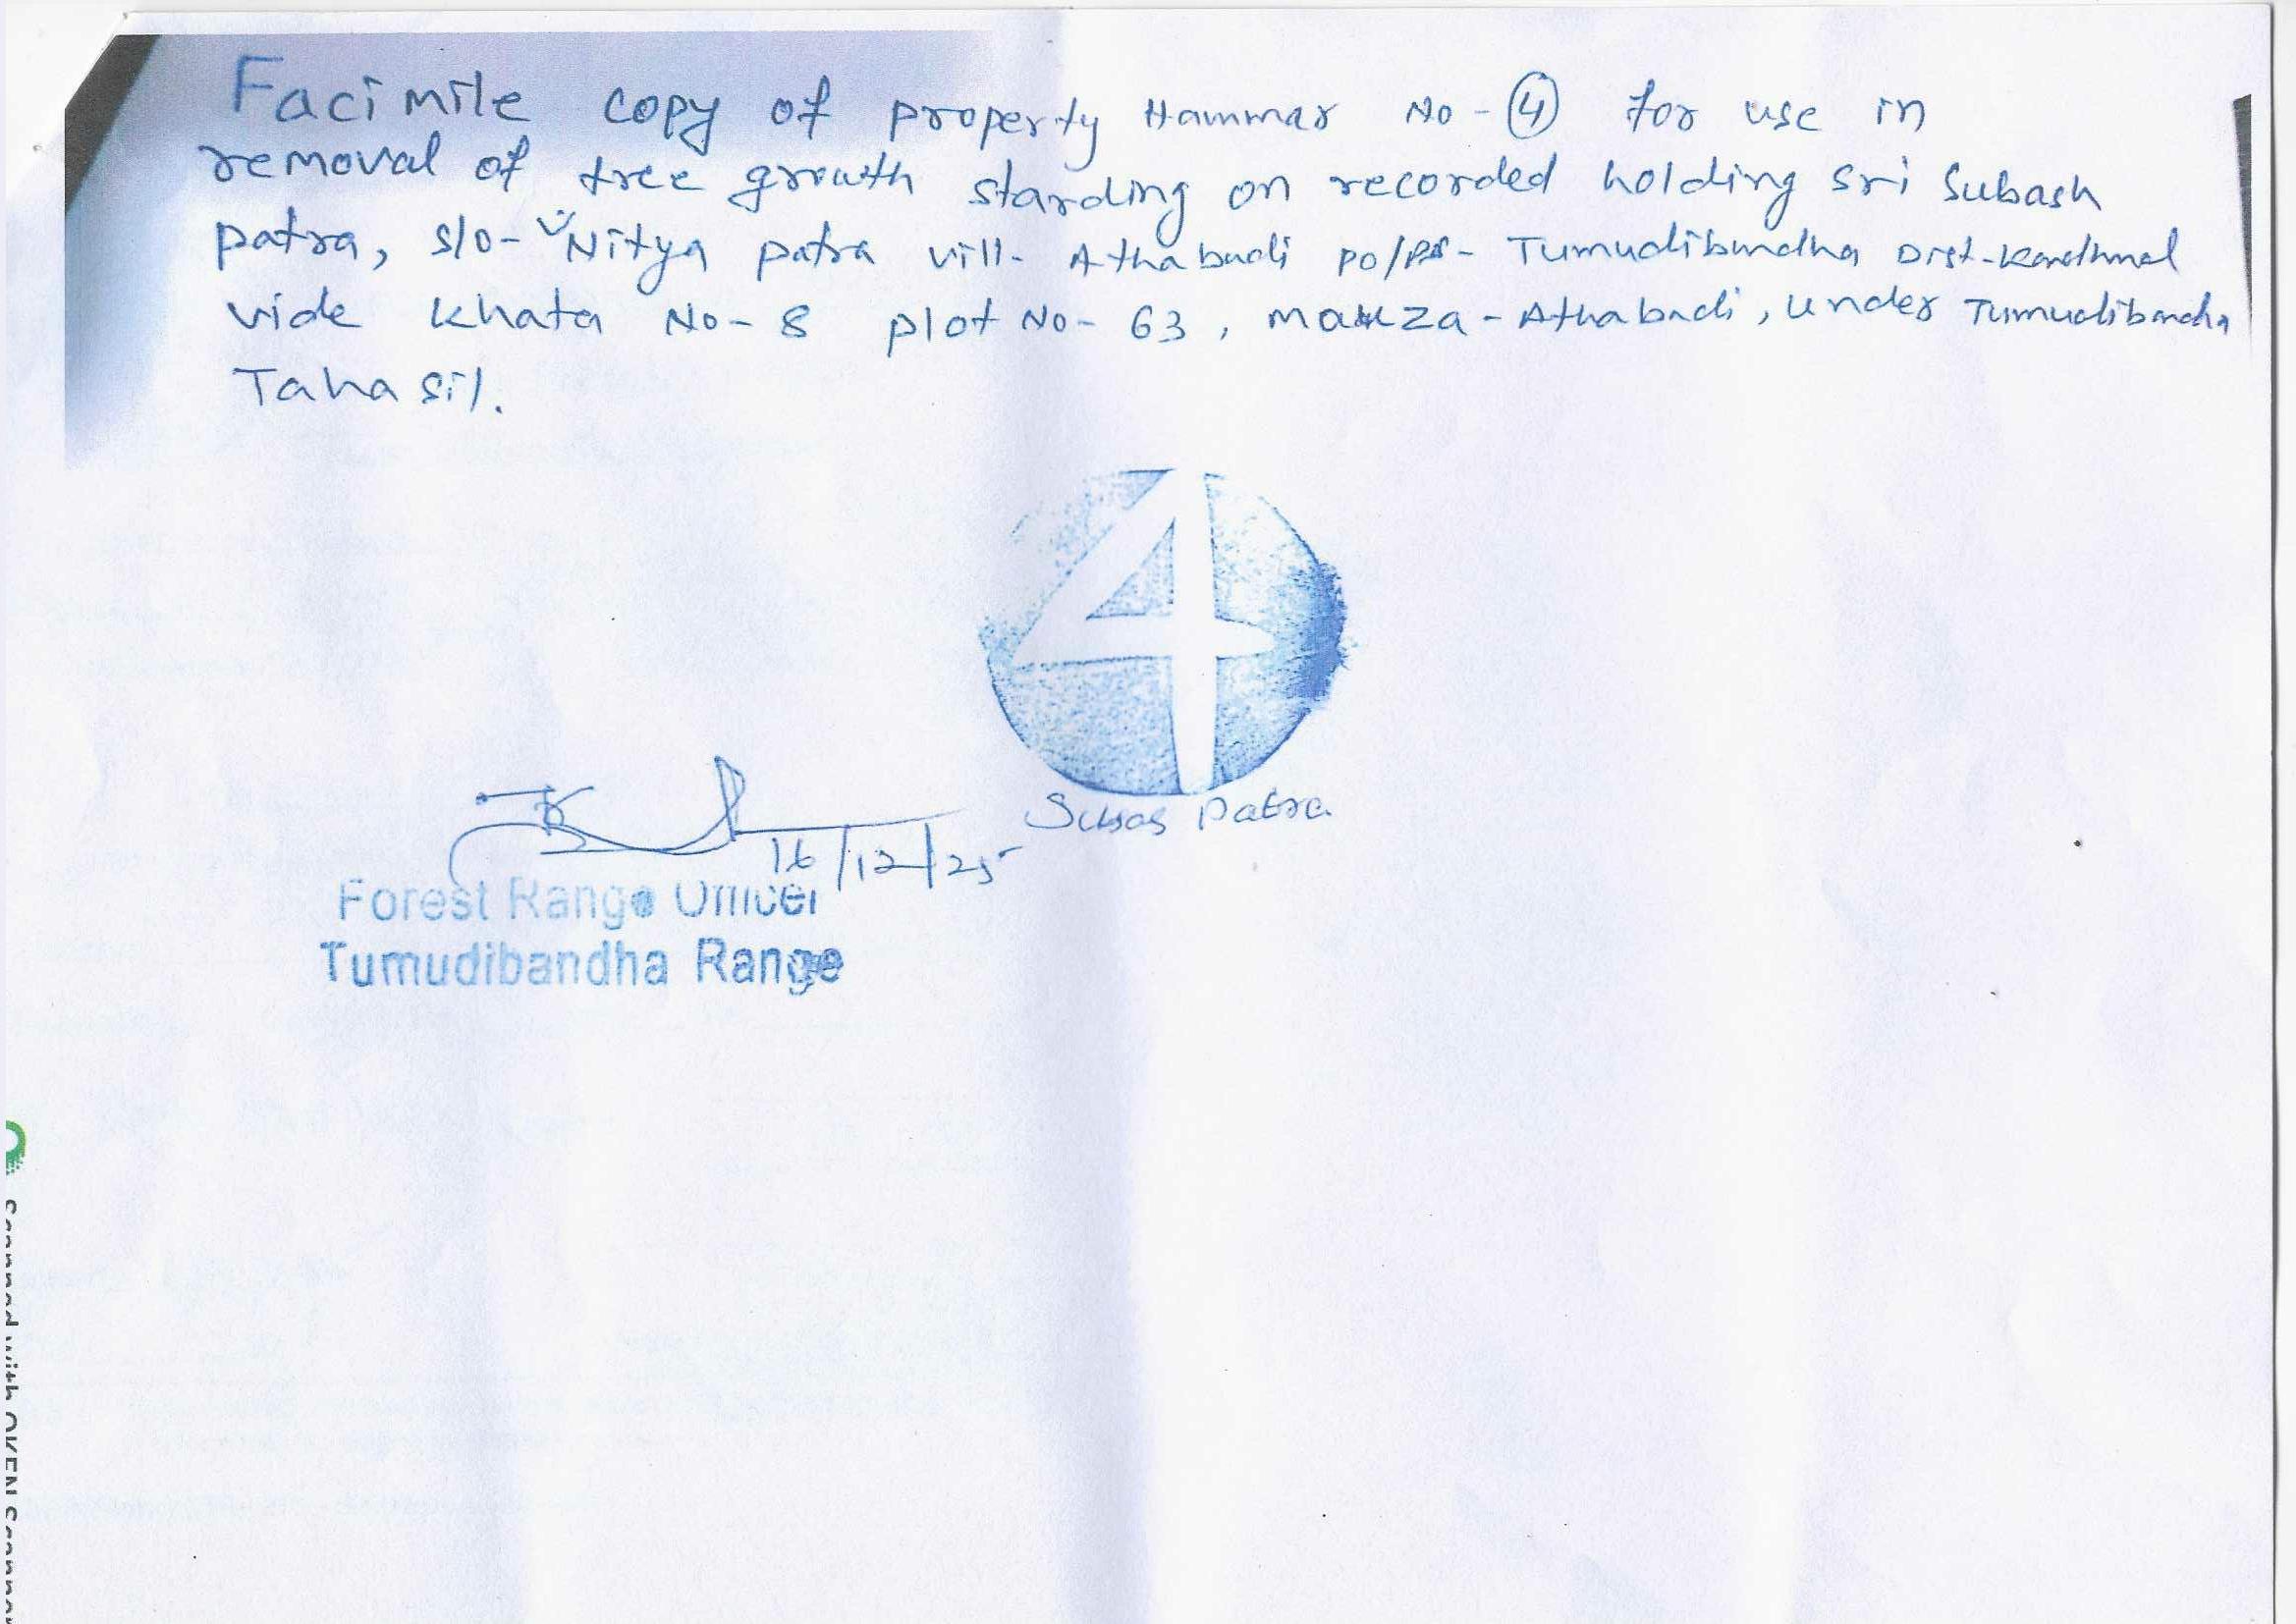 Facimile copy of property Hammar No-④ for use in
removal of tree growth standing on recorded holding Sri Subash
patra, S/o- Nitya patra vill- Athabudi po/ps- Tumudibandha Dist-Kandhmal
vide Khata No- 8 plot No- 63, mauza-Athabudi, under Tumudibandha
Tahasil.
4
Subas Patra
16/12/25
Forest Range Officer
Tumudibandha Range
Scanned with OKEN Scanner